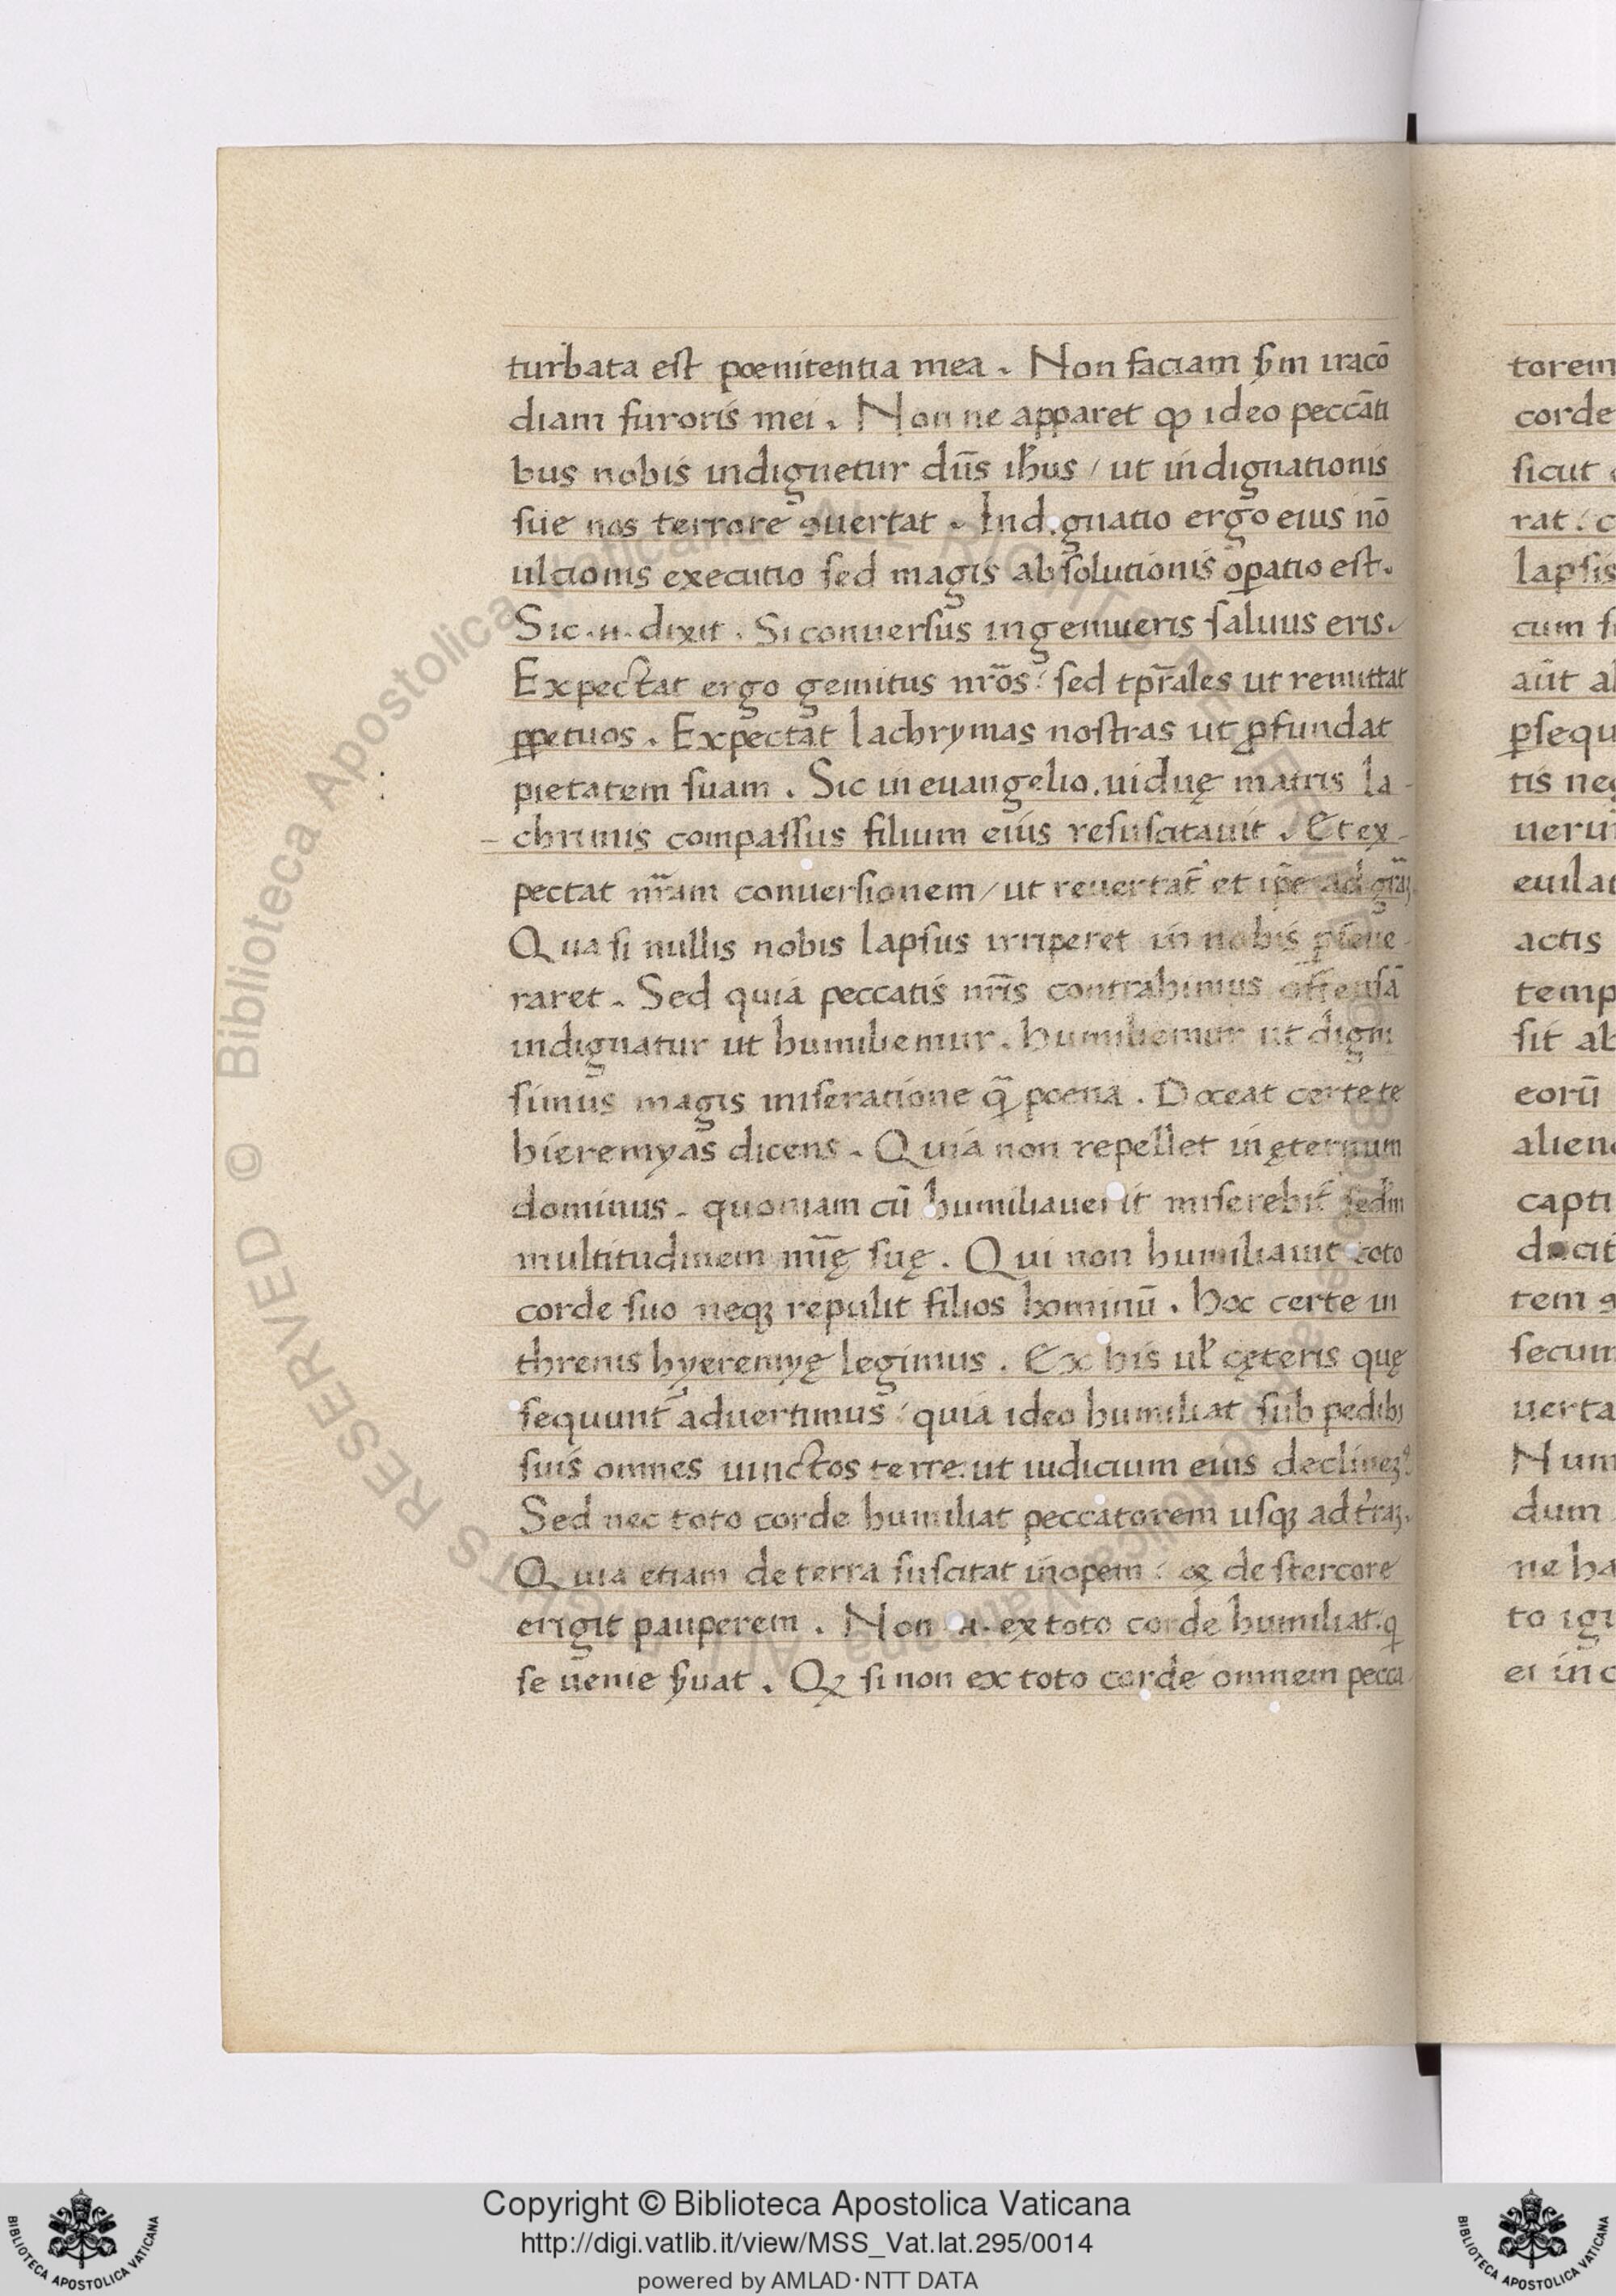 turbata est poenitentia mea . Non faciam ẜm iracō
diam furoris mei . Non ne apparet ꝙ ideo peccāti
bus nobis indignetur dn̄s ih̄us / ut indignationis
sue nos terrore ꝯuertat . Indignatio ergo eius nō
ultionis executio sed magis absolutionis oꝑatio est .
Sic .n. dixit . Si conuersus ingemueris saluus eris .
Expectat ergo gemitus nr̄os : sed tpr̄ales ut remittat
ꝑpetuos . Expectat lachrymas nostras ut ꝓfundat
pietatem suam . Sic in euangelio . uiduę matris la-
chrimis compassus filium eius resuscitauit . Et ex-
pectat nr̄am conuersionem / ut reuertat᷑ et ip̄e ad gr̄aꝫ
Quasi nullis nobis lapsus irriperet in nobis ꝑseue-
raret . Sed quia peccatis nr̄is contrahimus offensā
indignatur ut humiliemur . humiliemur ut digni
simus magis miseratione q̄ poena . Doceat certe te
hieremyas dicens . Quia non repellet in ęternum
dominus . quoniam cū humiliauerit miserebit᷑ scd̄m
multitudinem mīę suę . Qui non humiliauit toto
corde suo neqꝫ repulit filios hominū . Hoc certe in
threnis hyeremyę legimus . Ex his ul̄ cęteris quę
sequunt᷑ aduertimus : quia ideo humiliat sub pedibꝫ
suis omnes uinctos terre : ut iudicium eius declinet᷑
Sed nec toto corde humiliat peccatorem usqꝫ ad tr̄aꝫ .
Quia etiam de terra suscitat inopem : & de stercore
erigit pauperem . Non .n. ex toto corde humiliat . q
se uenie ẜuat . Qꝫ si non ex toto corde omnem pecca
torem
corde
sicut
rat : c
lapsis
cum
aūt
ꝑsequ
tis
euilat
actis
temp
sit ab
eorū
alien
capti
docit
tem
secum
uerta
Num
dum
ne ha
to igi
ei in c
Biblioteca Apostolica Vaticana
ALL RIGHTS RESERVED ©
Copyright © Biblioteca Apostolica Vaticana
http://digi.vatlib.it/view/MSS_Vat.lat.295/0014
powered by AMLAD·NTT DATA
BIBLIOTECA APOSTOLICA VATICANA
BIBLIOTECA APOSTOLICA VATICANA